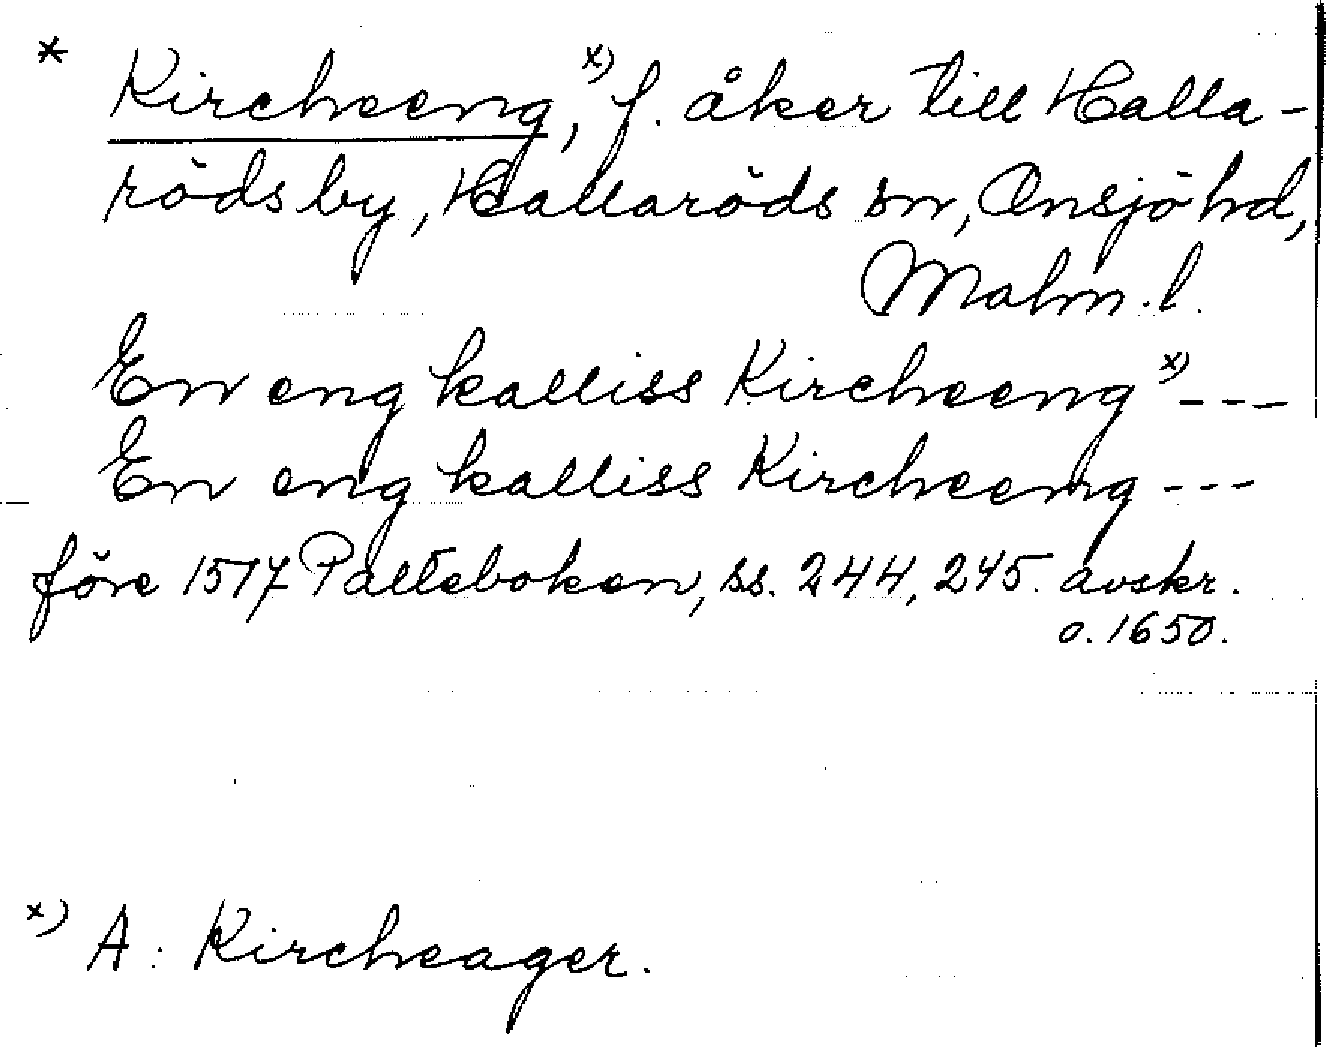 * Kircheeng, x) f. åker till Halla-
röds by, Hallaröds sn, Onsjö hd,
Malm. l.
En eng kalliss Kircheeng x) ---
En eng kalliss Kircheeng ---
före 1517 Palteboken, ss. 244, 245. avskr.
o. 1650.
x) A: Kircheager.